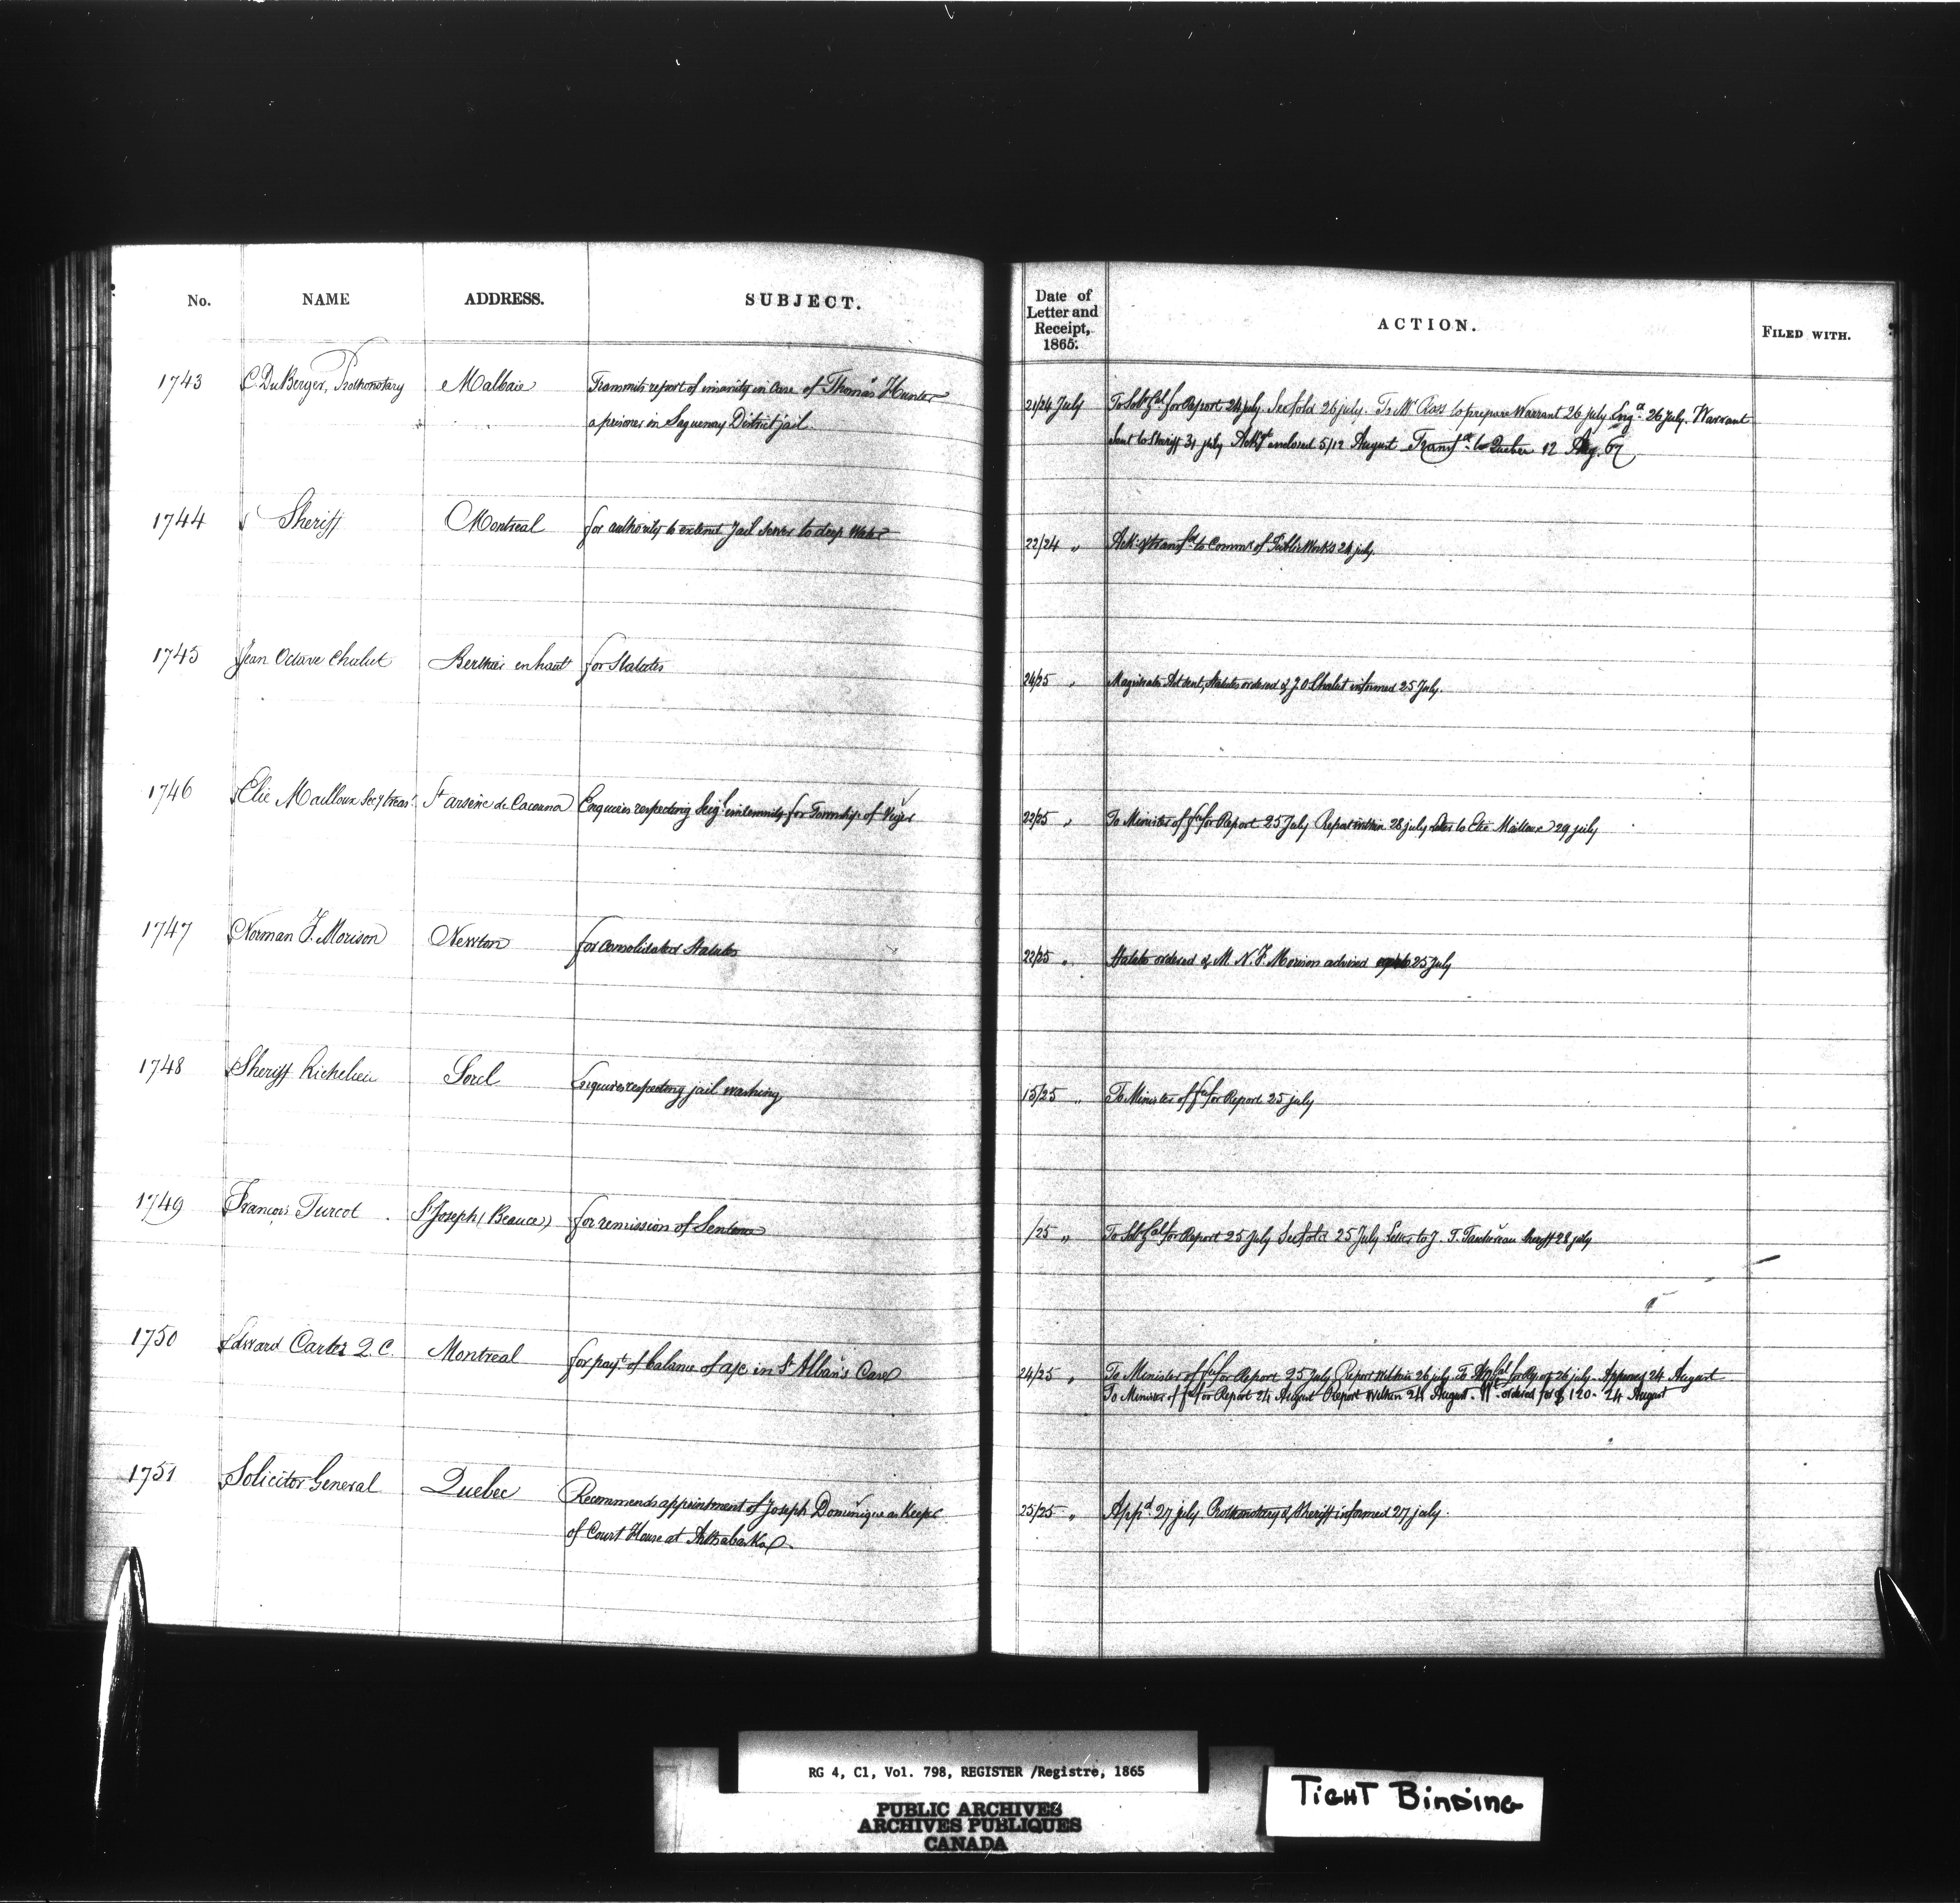 No. NAME ADDRESS. SUBJECT. Date of Letter and Receipt, 1865. ACTION. FILED WITH.
1743 C. DuBerger, Prothonotary Malbaie Transmits report of insanity in case of Thomas Hunter
a prisoner in Saguenay District jail.
21/24 July To Sol: Gal for Report 24 july. See fold 26 july. To Mr Ross to prepare Warrant 26 july Eng.d 26 July. Warrant
sent to Sheriff 31 july Ack.gt enclosed 5/12 August Transf.d to Quebec 12 Aug. 67
1744 Sheriff Montreal for authority to extend Jail sewer to deep Water
22/24 " Ack: & transf.d to Commr of Public Works 24 july.
1745 Jean Octave Chalut Berthier en haut for Statutes
24/25 " Magistrates Act sent, Statutes ordered & J. O. Chalut informed 25 July.
1746 Elie Mailloux Sec'y treas.r St arsène de Cacouna Enquires respecting Seig.l indemnity for Township of Viger
22/25 " To Minister of fce for Report 25 July Report within 28 july Letter to Elie Mailloux 29 july
1747 Norman F. Morison Newton for consolidated Statutes
22/25 " Statutes ordered & M. N. F. Morison advised 25 July
1748 Sheriff Richelieu Sorel Enquires respecting jail washing
15/25 " To Minister of fce for Report 25 july
1749 Francois Turcot St Joseph (Beauce) for remission of Sentence
/25 " To Sol: Gal for Report 25 July See fold 25 July Letter to J. T. Taschereau Sheriff 28 july
1750 Edward Carter Q. C. Montreal for pay.t of balance of a/c in St Alban's Case
24/25 " To Minister of fce for Report 25 July Report within 26 july To Att Gal for Report 26 july. Approved 24 August
To Minister of fce for Report 24 August Report within 24 August. Wt ordered for $ 120 - 24 August
1751 Solicitor General Quebec Recommends appointment of Joseph Dominique as Keeper
of Court House at Arthabaska.
25/25 " App.d 27 july Prothonotary & Sheriff informed 27 july.
RG 4, C1, Vol. 798, REGISTER /Registre, 1865
PUBLIC ARCHIVES
ARCHIVES PUBLIQUES
CANADA
TIGHT BINDING